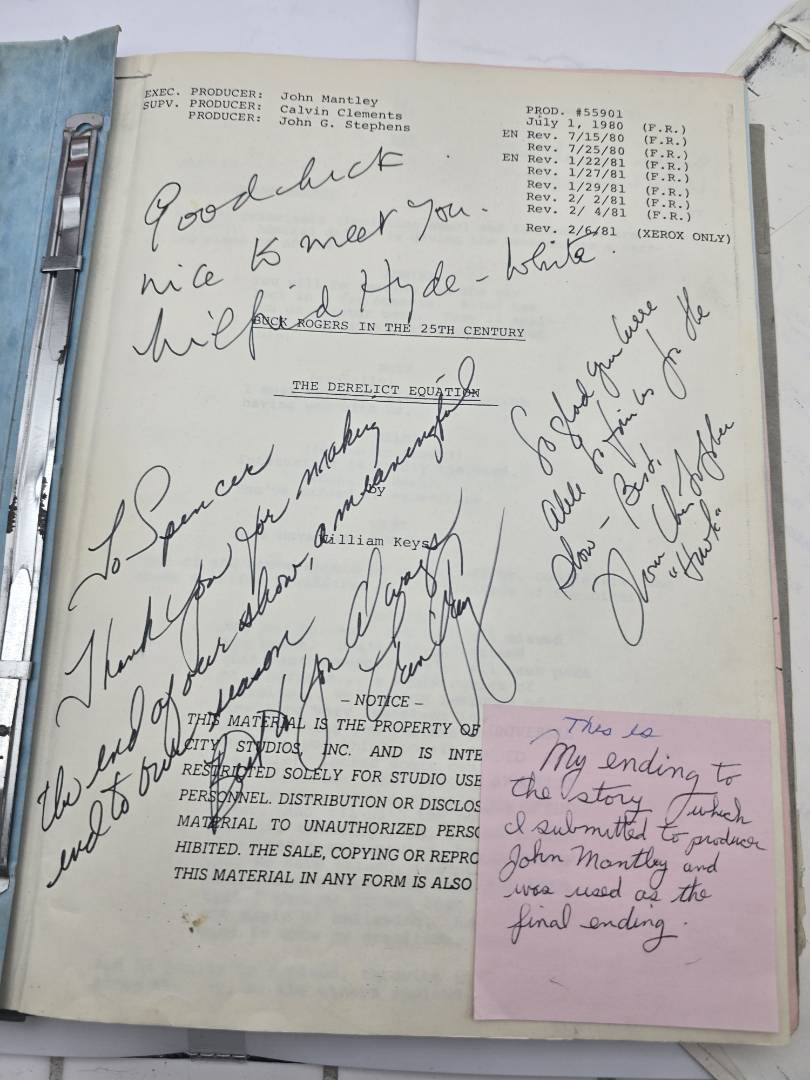 EXEC. PRODUCER: John Mantley
SUPV. PRODUCER: Calvin Clements
PRODUCER: John G. Stephens
PROD. #55901
July 1, 1980 (F.R.)
EN Rev. 7/15/80 (F.R.)
Rev. 7/25/80 (F.R.)
EN Rev. 1/22/81 (F.R.)
Rev. 1/27/81 (F.R.)
Rev. 1/29/81 (F.R.)
Rev. 2/ 2/81 (F.R.)
Rev. 2/ 4/81 (F.R.)
Rev. 2/6/81 (XEROX ONLY)
Good luck
nice to meet you.
Wilfrid Hyde-White.
BUCK ROGERS IN THE 25TH CENTURY
THE DERELICT EQUATION
by
William Keys
So glad you were
able to join us for the
show - Best,
Thom Christopher
"Hawk"
To Spencer
Thank you for making
the end of our show, a meaningful
end to our season
Best to you Always
– NOTICE –
THIS MATERIAL IS THE PROPERTY OF
CITY STUDIOS, INC. AND IS INTE
RESTRICTED SOLELY FOR STUDIO USE
PERSONNEL. DISTRIBUTION OR DISCLOS
MATERIAL TO UNAUTHORIZED PERSO
HIBITED. THE SALE, COPYING OR REPRO
THIS MATERIAL IN ANY FORM IS ALSO
This is
My ending to
the story which
I submitted to producer
John Mantley and
was used as the
final ending.